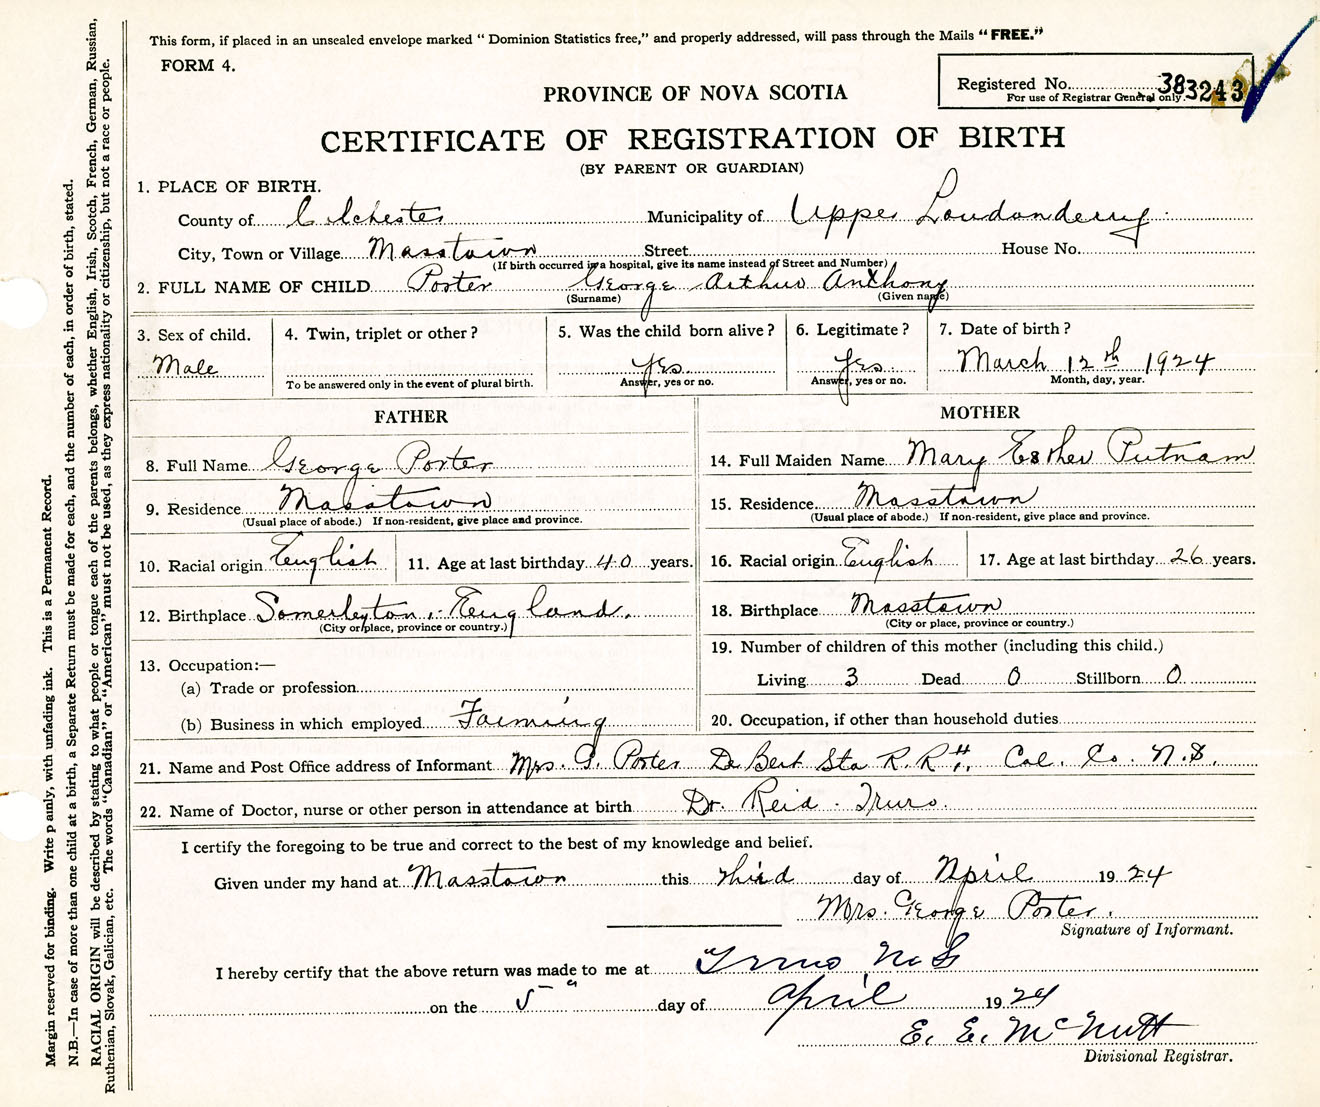 This form, if placed in an unsealed envelope marked "Dominion Statistics free," and properly addressed, will pass through the Mails "FREE."
FORM 4.
Registered No. 383243
For use of Registrar General only.
PROVINCE OF NOVA SCOTIA
CERTIFICATE OF REGISTRATION OF BIRTH
(BY PARENT OR GUARDIAN)
1. PLACE OF BIRTH.
County of Colchester Municipality of Upper Londonderry
City, Town or Village Masstown Street House No.
(If birth occurred in a hospital, give its name instead of Street and Number)
2. FULL NAME OF CHILD Porter George Arthur Anthony
(Surname) (Given name)
3. Sex of child. 4. Twin, triplet or other? 5. Was the child born alive? 6. Legitimate? 7. Date of birth?
Male Yes. Yes. March 12th 1924
To be answered only in the event of plural birth. Answer, yes or no. Answer, yes or no. Month, day, year.
FATHER
8. Full Name George Porter
9. Residence Masstown
(Usual place of abode.) If non-resident, give place and province.
10. Racial origin English 11. Age at last birthday 40 years.
12. Birthplace Somerleyton, England.
(City or place, province or country.)
13. Occupation:—
(a) Trade or profession
(b) Business in which employed Farming
MOTHER
14. Full Maiden Name Mary Esther Putnam
15. Residence Masstown
(Usual place of abode.) If non-resident, give place and province.
16. Racial origin English 17. Age at last birthday 26 years.
18. Birthplace Masstown
(City or place, province or country.)
19. Number of children of this mother (including this child.)
Living 3 Dead 0 Stillborn 0
20. Occupation, if other than household duties
21. Name and Post Office address of Informant Mrs. G. Porter De Bert Sta R. R Col. Co. N.S.
22. Name of Doctor, nurse or other person in attendance at birth Dr. Reid - Truro.
I certify the foregoing to be true and correct to the best of my knowledge and belief.
Given under my hand at Masstown this third day of April 1924
Mrs. George Porter.
Signature of Informant.
I hereby certify that the above return was made to me at Truro N S
on the 5" day of April 1924
E. E. McNutt
Divisional Registrar.
Margin reserved for binding. Write p anly, with unfading ink. This is a Permanent Record.
N.B.—In case of more than one child at a birth, a Separate Return must be made for each, and the number of each, in order of birth, stated.
RACIAL ORIGIN will be described by stating to what people or tongue each of the parents belongs, whether English, Irish, Scotch, French, German, Russian,
Ruthenian, Slovak, Galician, etc. The words "Canadian" or "American" must not be used, as they express nationality or citizenship, but not a race or people.